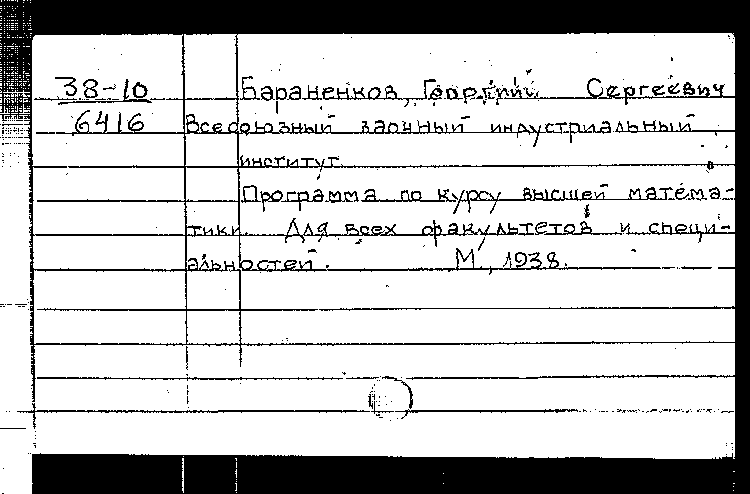 38-10 Бараненков, Георгий Сергеевич
6416 Всесоюзный заочный индустриальный
институт.
Программа по курсу высшей матема-
тики. Для всех факультетов и специ-
альностей. М., 1938.